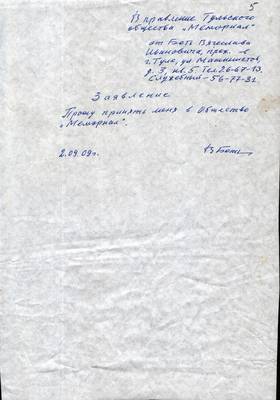 5
В правление Тульского
общества „Мемориал"
от Ботт Вячеслава
Ивановича, прож. в
г. Туле, ул. Машинистов,
д. 3, кв. 5. Тел. 26-67-13,
Служебный - 56-77-31
Заявление
Прошу принять меня в Общество
„Мемориал".
2.09.09г.